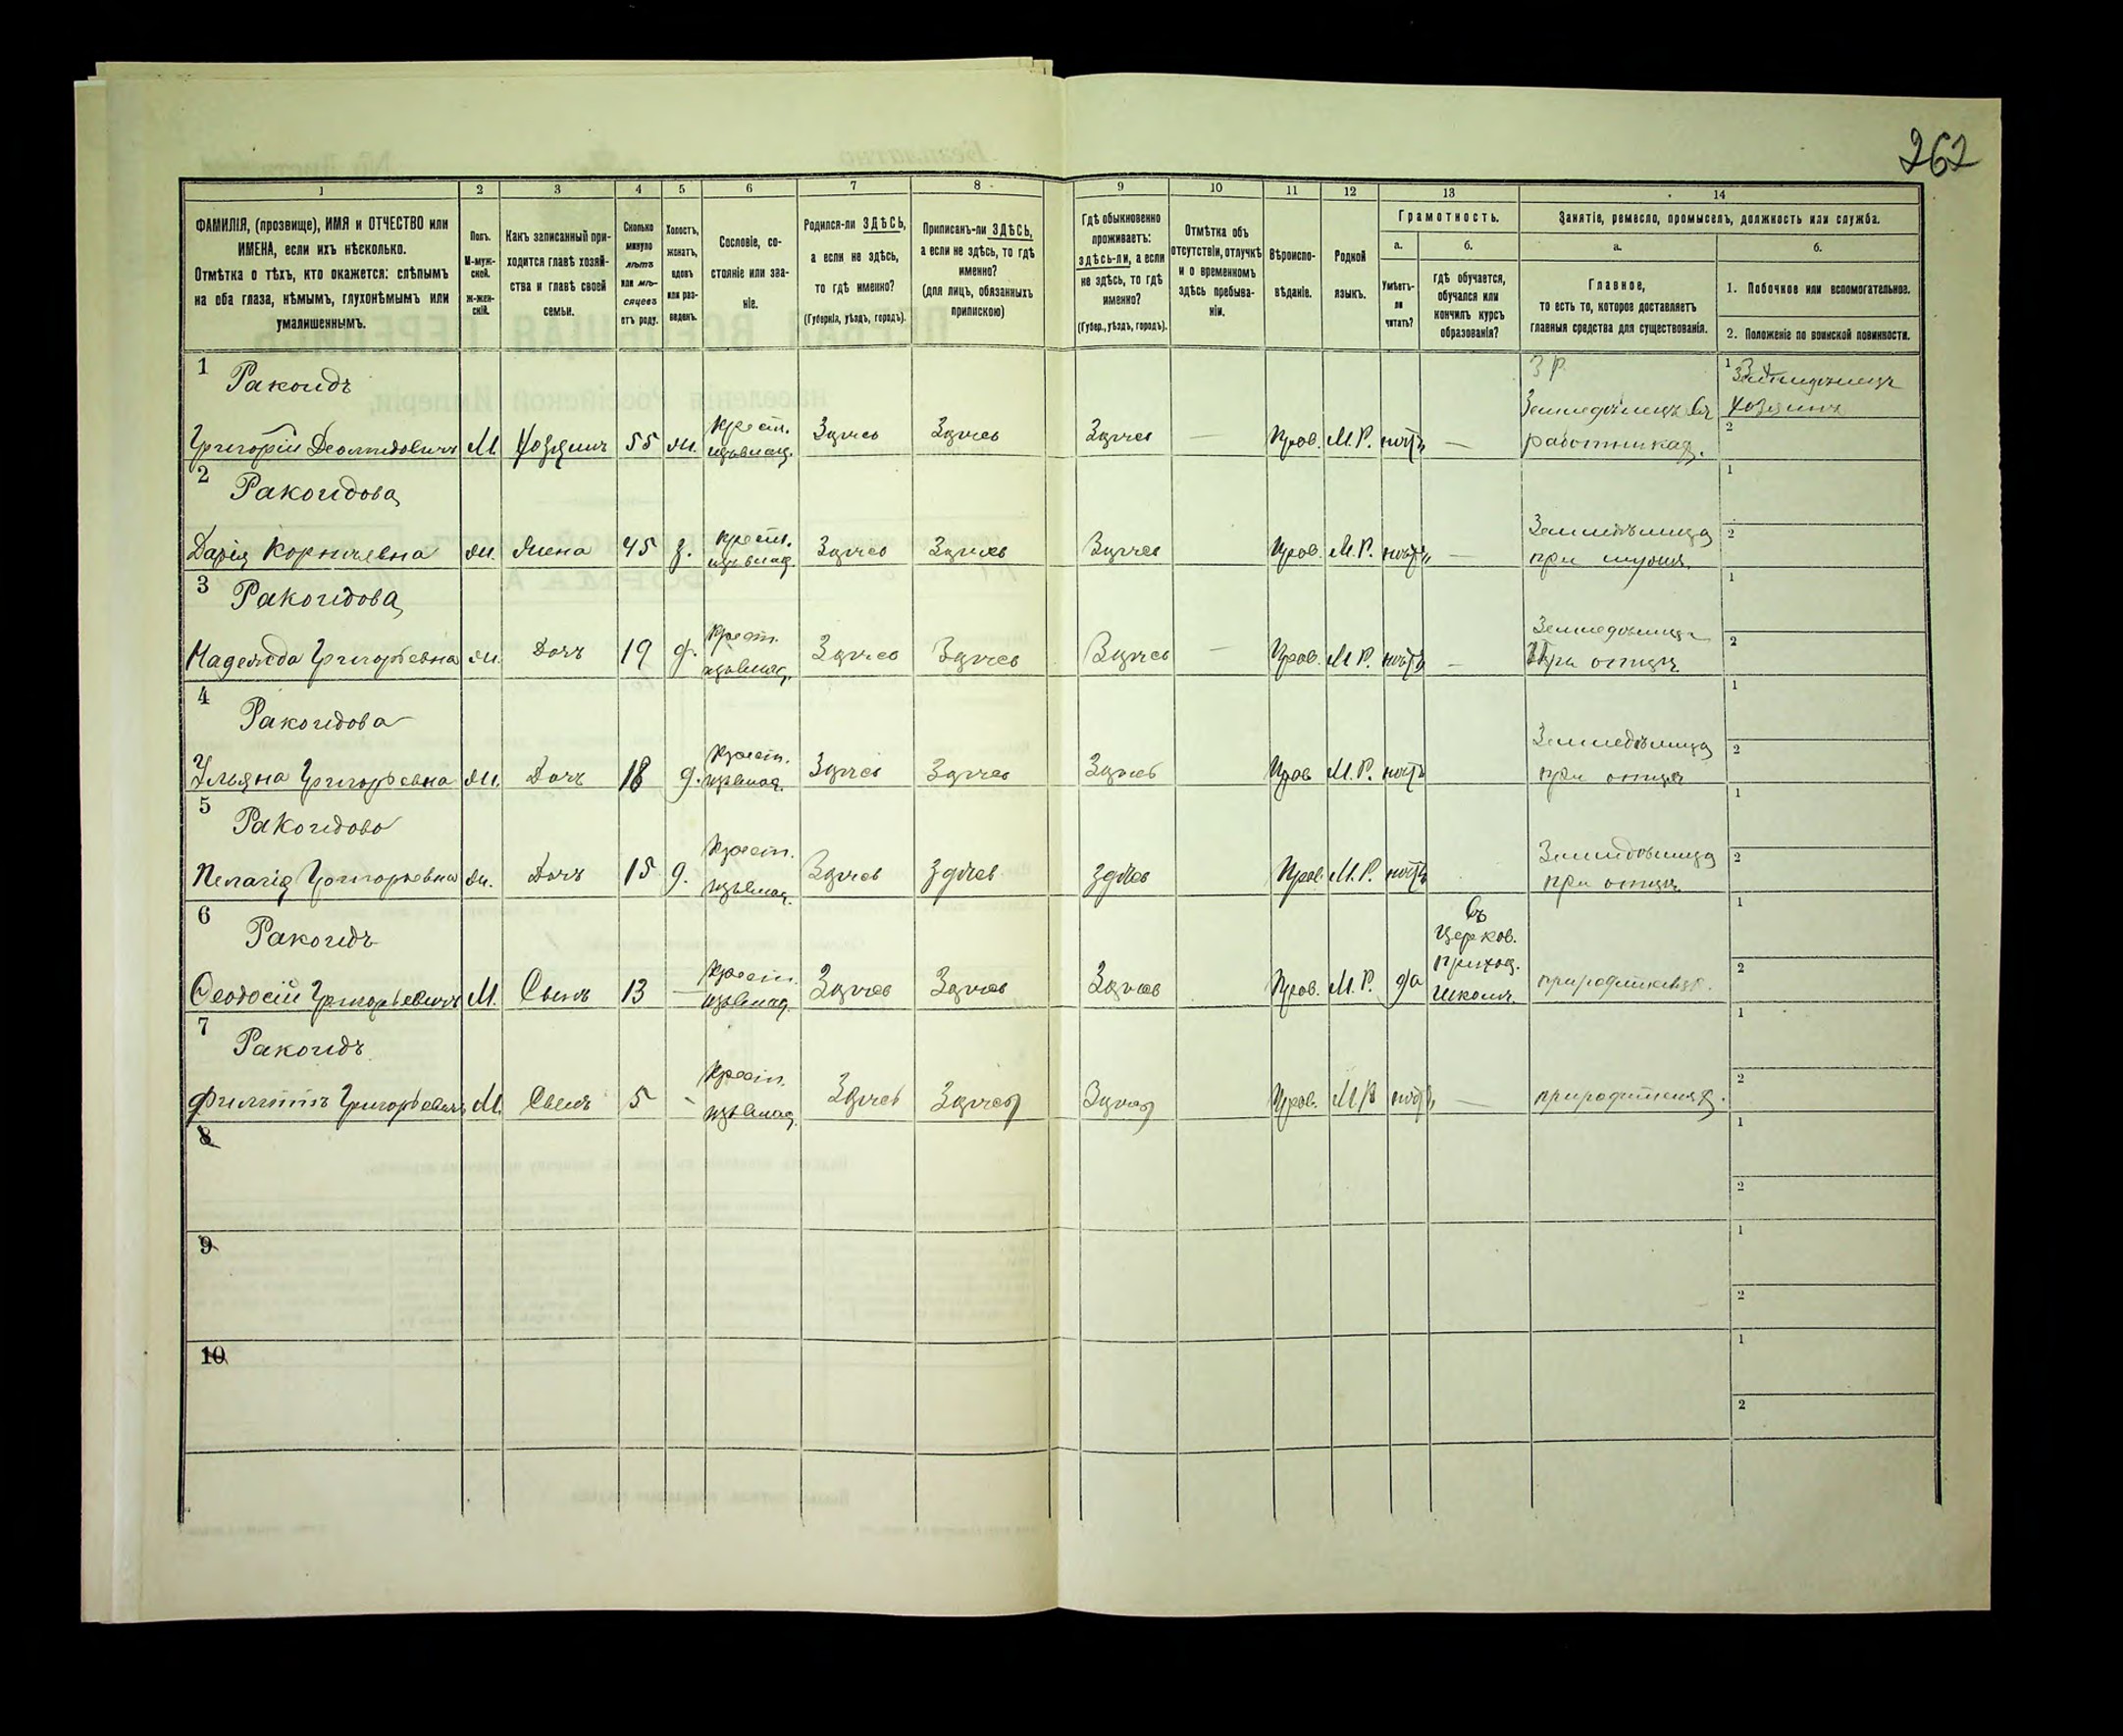 262
1 2 3 4 5 6 7 8 9 10 11 12 13 14
ФАМИЛІЯ, (прозвище), ИМЯ и ОТЧЕСТВО или
ИМЕНА, если ихъ нѣсколько.
Отмѣтка о тѣхъ, кто окажется: слѣпымъ
на оба глаза, нѣмымъ, глухонѣмымъ или
умалишеннымъ.
Полъ.
М-муж-
ской.
Ж-жен-
скій.
Какъ записанный при-
ходится главѣ хозяй-
ства и главѣ своей
семьи.
Сколько
минуло
лѣтъ
или мѣ-
сяцевъ
отъ роду.
Холостъ,
женатъ,
вдовъ
или раз-
веденъ.
Сословіе, со-
стояніе или зва-
ніе.
Родился-ли ЗДѢСЬ,
а если не здѣсь,
то гдѣ именно?
(Губернія, уѣздъ, городъ).
Приписанъ-ли ЗДѢСЬ,
а если не здѣсь, то гдѣ
именно?
(для лицъ, обязанныхъ
припискою)
Гдѣ обыкновенно
проживаетъ:
здѣсь-ли, а если
не здѣсь, то гдѣ
именно?
(Губер., уѣздъ, городъ).
Отмѣтка объ
отсутствіи, отлучкѣ
и о временномъ
здѣсь пребыва-
ніи.
Вѣроиспо-
вѣданіе.
Родной
языкъ.
Грамотность.
а.
Умѣетъ-
ли
читать?
б.
Гдѣ обучается,
обучался или
кончилъ курсъ
образованія?
Занятіе, ремесло, промыселъ, должность или служба.
а.
Главное,
то есть то, которое доставляетъ
главныя средства для существованія.
б.
1. Побочное или вспомогательное.
2. Положеніе по воинской повинности.
1 Ракоидъ ЗР 1
Земледѣлецъ въ Хозяинъ
Григорій М. Хозяинъ 55 ж. Крест. Здѣсь Здѣсь Здѣсь — Прав. М.Р. нѣтъ — 2
2 Ракоидова 1
Дарія Корнѣевна ж. Жена 45 з. Крест. Здѣсь Здѣсь Здѣсь Прав. М.Р. нѣтъ — 2
при мужѣ.
3 Ракоидова 1
Надежда Григорьевна ж. Дочь 19 д. Крест. Здѣсь Здѣсь Здѣсь — Прав. М.Р. нѣтъ — 2
При отцѣ
4 Ракоидова 1
Ульяна Григорьевна ж. Дочь 18 д. Крест. Здѣсь Здѣсь Здѣсь Прав М.Р. нѣтъ 2
при отцѣ
5 Ракоидова 1
Пелагія Григорьевна ж. Дочь 15 д. Крест. Здѣсь Здѣсь Здѣсь Прав. М.Р. нѣтъ 2
при отцѣ
6 Ракоидъ Въ 1
Церков.
приход.
Феодосій Григорьевичъ М. Сынъ 13 — Крест. Здѣсь Здѣсь Здѣсь Прав. М.Р. да школѣ. при родителяхъ. 2
7 Ракоидъ 1
Филиппъ Григорьевичъ М. Сынъ 5 - Крест. Здѣсь Здѣсь Здѣсь Прав. М.Р. нѣтъ — при родителяхъ. 2
8 1
2
9 1
2
10 1
2